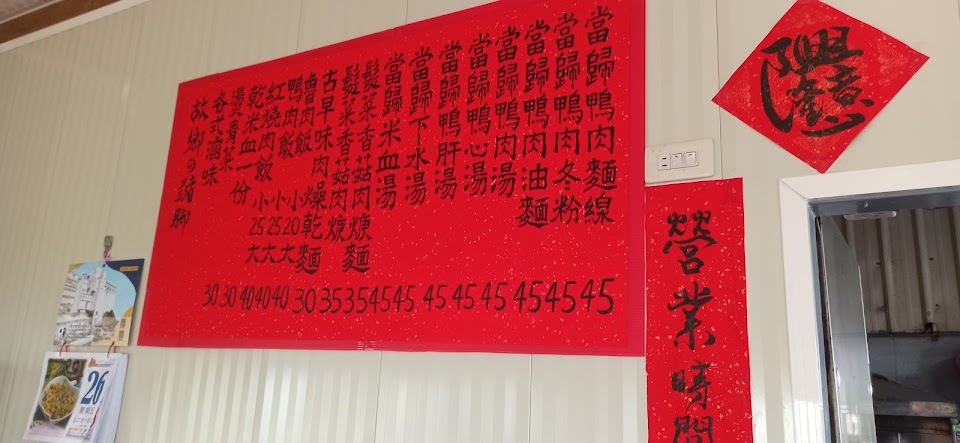 當歸鴨肉麵線 45
當歸鴨肉冬粉 45
當歸鴨肉油麵 45
當歸鴨肉湯 45
當歸鴨心湯 45
當歸鴨肝湯 45
當歸下水湯 45
當歸米血湯 45
髮菜香菇肉焿麵 35
髮菜香菇肉焿 35
古早味肉燥乾麵 30
魯肉飯 小20大40
鴨肉飯 小25大40
紅燒肉飯 小25大40
乾米血一份 30
燙青菜 30
各式滷味
故鄉の豬腳
營業時間
26